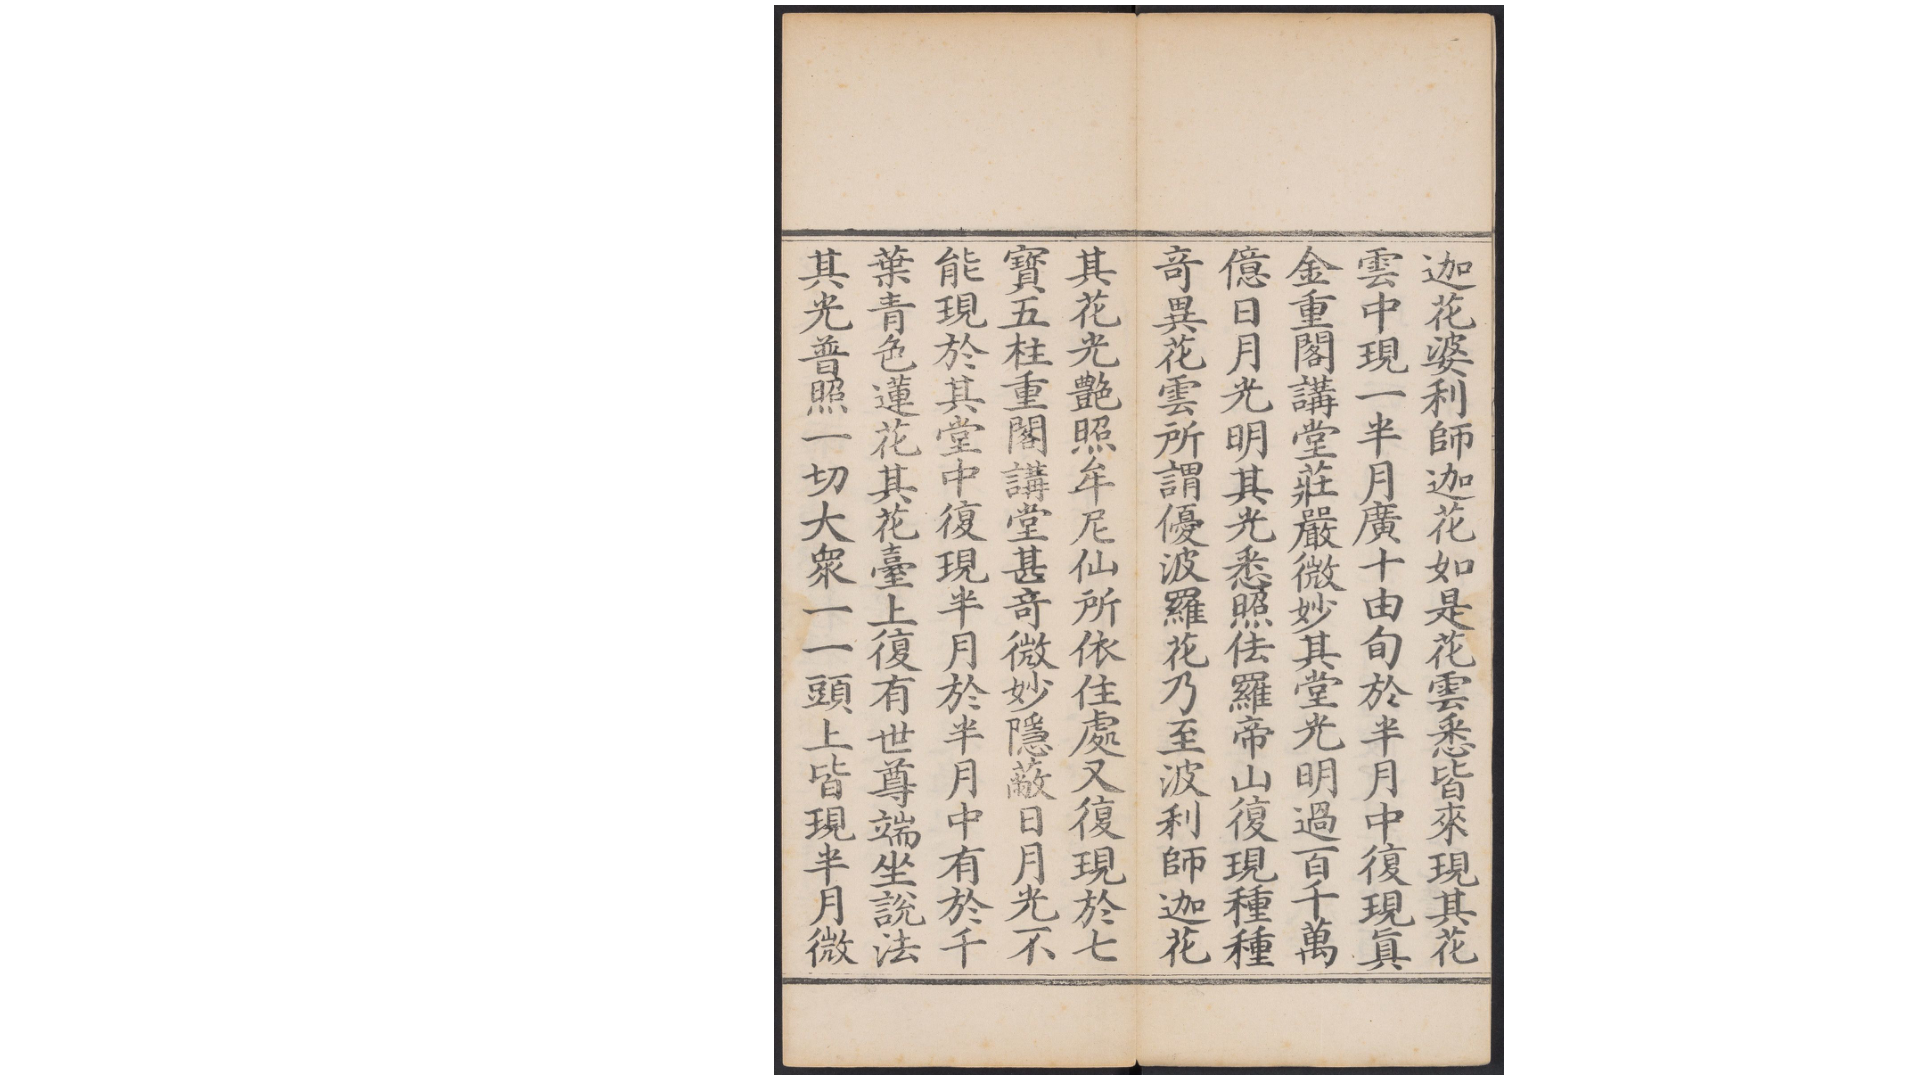 迦花婆利師迦花如是花雲悉皆來現其花
雲中現一半月廣十由旬於半月中復現眞
金重閣講堂莊嚴微妙其堂光明過百千萬
億日月光明其光悉照佉羅帝山復現種種
奇異花雲所謂優波羅花乃至波利師迦花
其花光艶照牟尼仙所依住處又復現於七
寳五柱重閣講堂甚奇微妙隱蔽日月光不
能現於其堂中復現半月於半月中有於千
葉青色蓮花其花臺上復有世尊端坐說法
其光普照一切大衆一一頭上皆現半月微